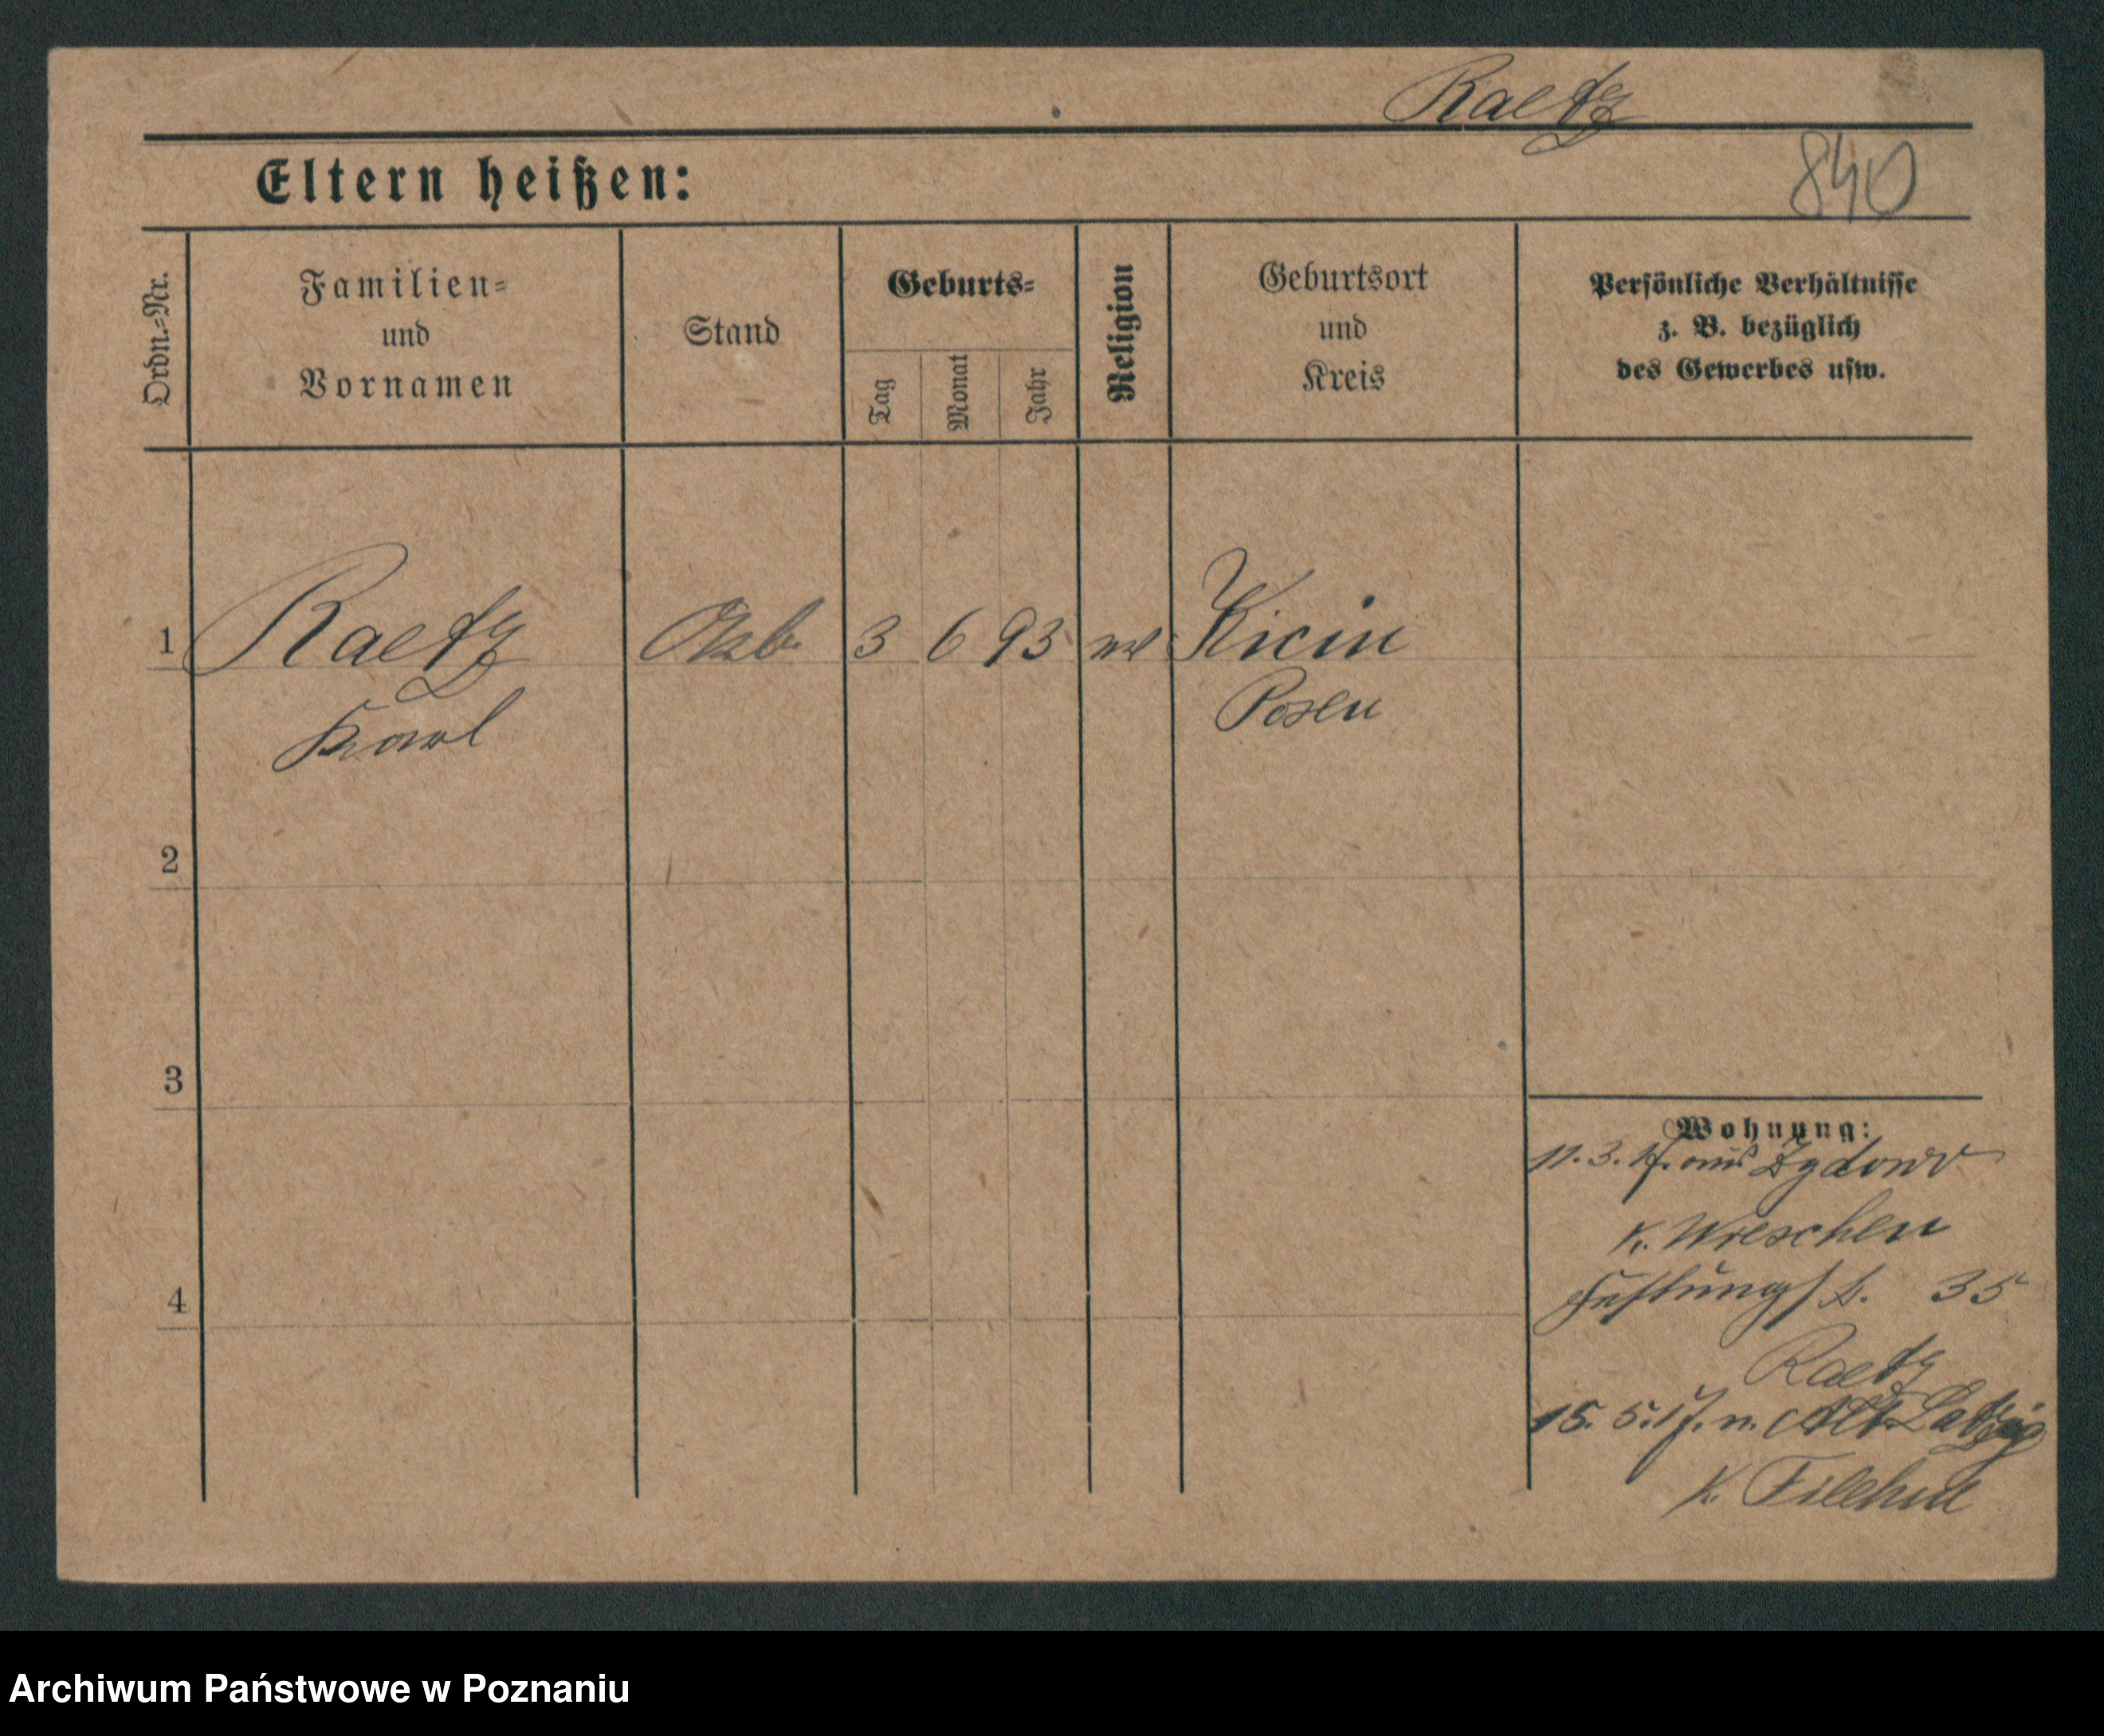 Raetz
840
Eltern heißen:
Ordn.-Nr.
Familien-
und
Vornamen
Stand
Geburts-
Tag
Monat
Jahr
Religion
Geburtsort
und
Kreis
Persönliche Verhältnisse
z. B. bezüglich
des Gewerbes usw.
1
Raetz
3 6 93
Kicin
Karl
Posen
2
3
4
Wohnung:
11. 3. 17. aus Zydowo
K. Wreschen
35
Raetz
15. 5. 17. n. Alt Latzig
K. Filehne
Archiwum Państwowe w Poznaniu